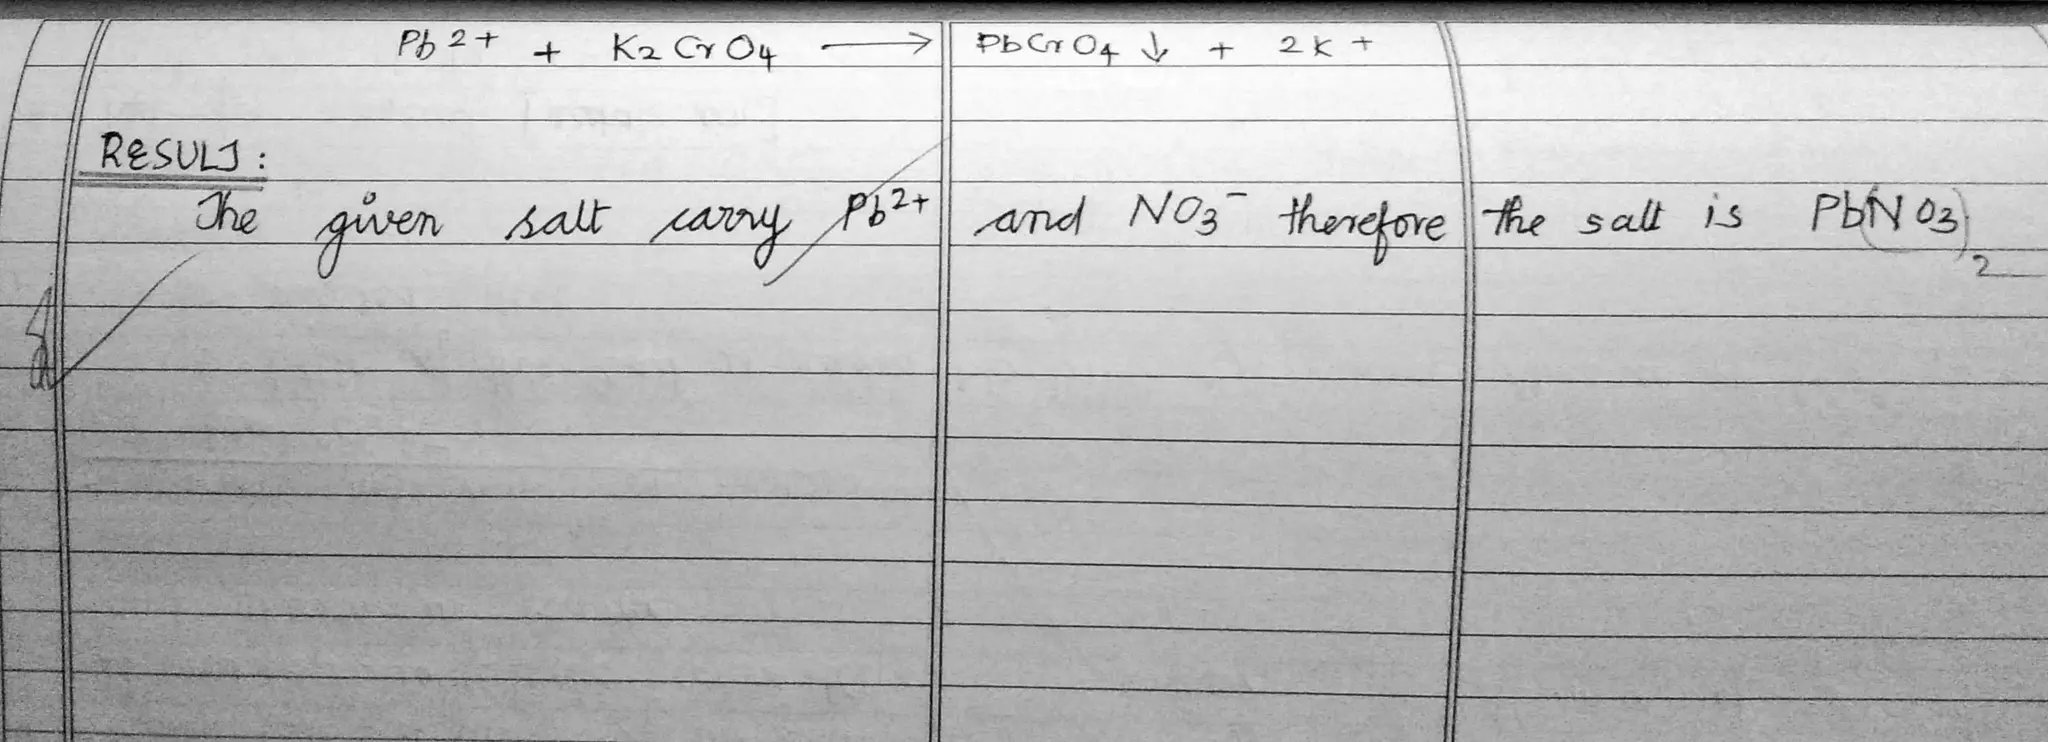 Pb2+ + K2CrO4 → PbCrO4 ↓ + 2K+
RESULT:
The given salt carry Pb2+ and NO3- therefore the salt is Pb(NO3)2